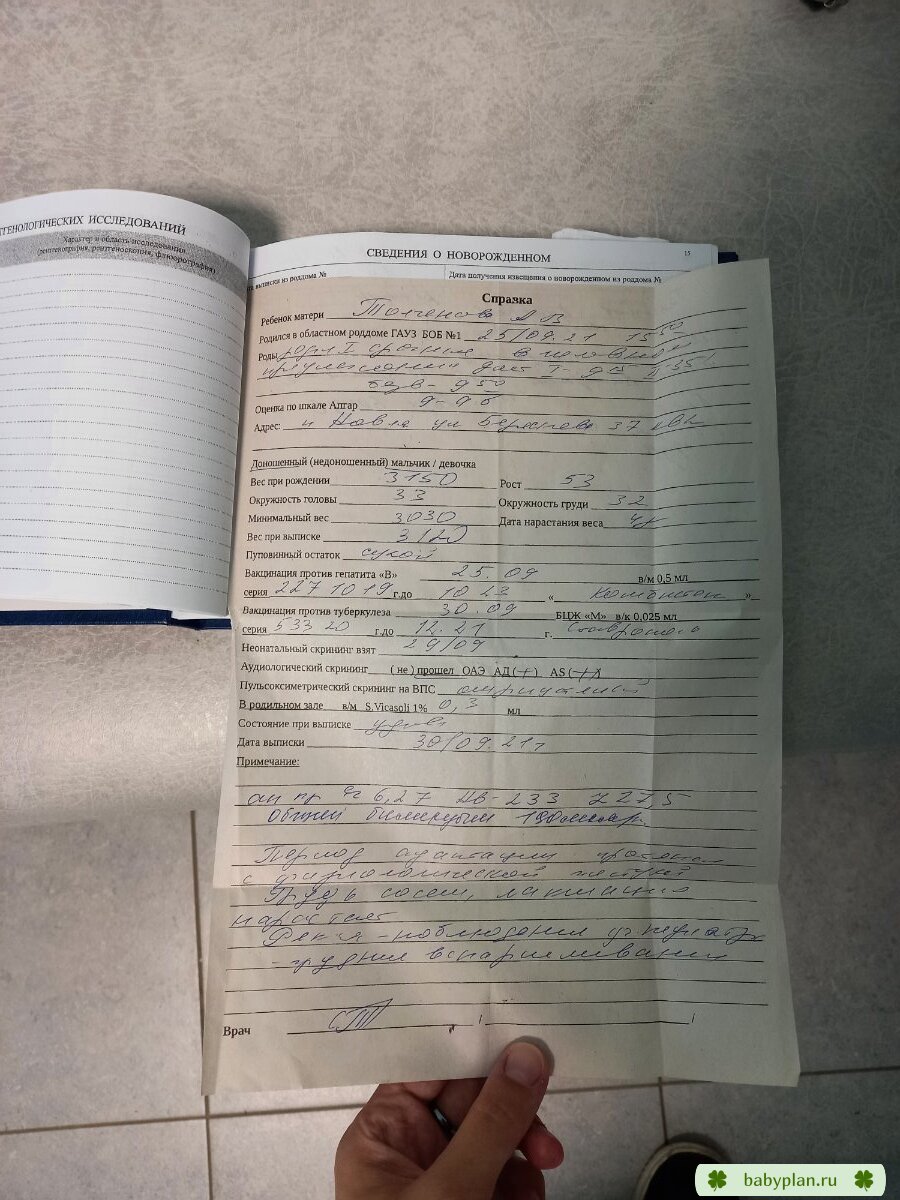 ТГЕНОЛОГИЧЕСКИХ ИССЛЕДОВАНИЙ
Характер и область исследования
(рентгенография, рентгеноскопия, флюорография)
СВЕДЕНИЯ О НОВОРОЖДЕННОМ
15
выписки из роддома №
Дата получения извещения о новорожденном из роддома №
Справка
Ребенок матери
Родился в областном роддоме ГАУЗ БОБ №1 25/09.21 15
Роды I в головном
Оценка по шкале Апгар 9-9б
Адрес: п Навля ул 37
Доношенный (недоношенный) мальчик / девочка
Вес при рождении 3150 Рост 53
Окружность головы 33 Окружность груди 32
Минимальный вес 3030 Дата нарастания веса
Вес при выписке 3120
Пуповинный остаток сухой
Вакцинация против гепатита «В» 25.09 в/м 0,5 мл
серия 2271019 г.до 10 23 « Комбиотех »
Вакцинация против туберкулеза 30.09 БЦЖ «М» в/к 0,025 мл
серия 533 20 г.до 12.21 г. Ставрополь
Неонатальный скрининг взят 29/09
Аудиологический скрининг ( не ) прошел ОАЭ АД (+) AS (+)
Пульсоксиметрический скрининг на ВПС отрицательный
В родильном зале в/м S.Vicasoli 1% 0,3 мл
Состояние при выписке удовл
Дата выписки 30/09.21г
Примечание:
ан кр 6,27 Нв-233
Общий билирубин 190
Период адаптации протекал
с физиологической желтухой
Грудь сосет, лактация
нарастает
- наблюдение
- грудное вскармливание
Врач
babyplan.ru